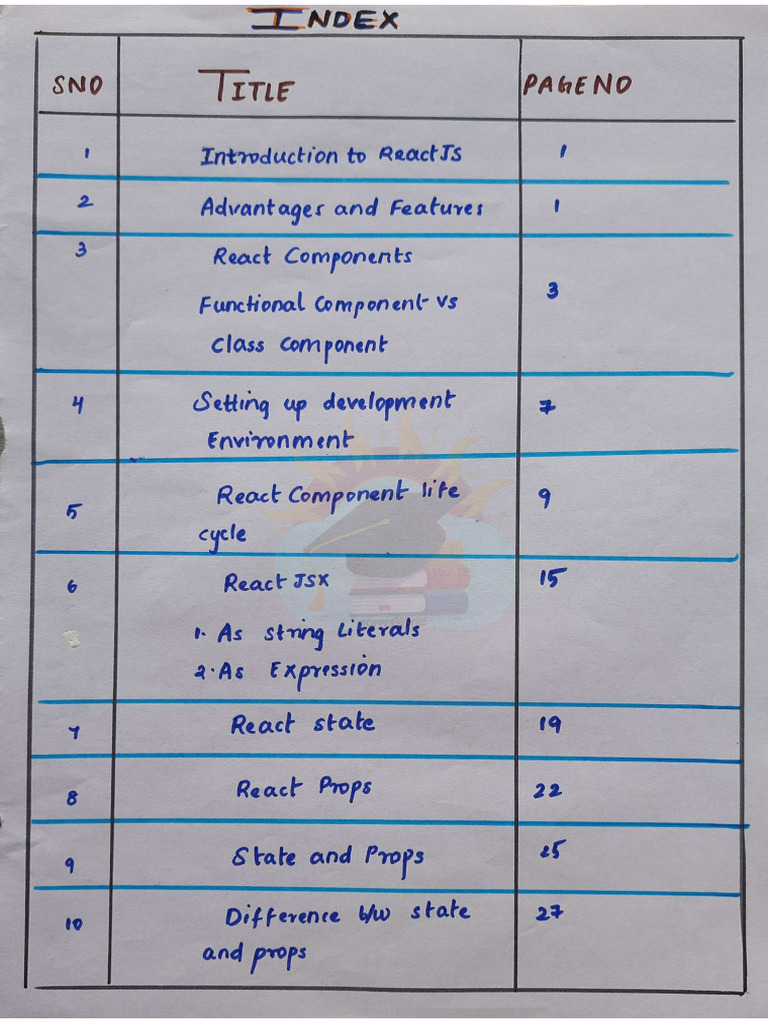 INDEX
SNO TITLE PAGE NO
1 Introduction to ReactJS 1
2 Advantages and Features 1
3 React Components
Functional Component vs 3
Class Component
4 Setting up development 7
Environment
5 React Component life 9
cycle
6 React JSX 15
1. As string Literals
2. As Expression
7 React state 19
8 React Props 22
9 State and Props 25
10 Difference b/w state 27
and props